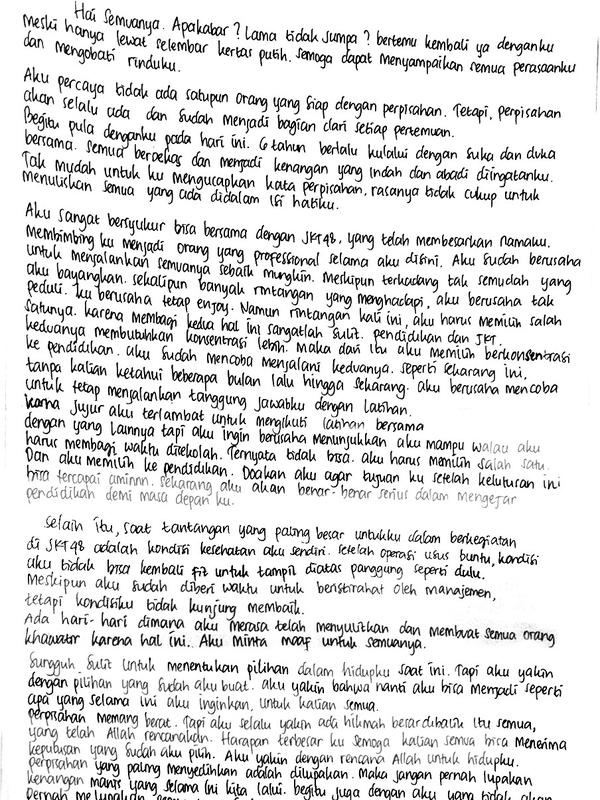 Hai Semuanya. Apakabar? Lama tidak jumpa? bertemu kembali ya denganku
meski hanya lewat selembar kertas putih. Semoga dapat menyampaikan semua perasaanku
dan mengobati rinduku.
Aku percaya tidak ada satupun orang yang siap dengan perpisahan. Tetapi, perpisahan
akan selalu ada dan sudah menjadi bagian dari setiap pertemuan.
Begitu pula denganku pada hari ini. 6 tahun berlalu kulalui dengan suka dan duka
bersama. Semua berbekas dan menjadi kenangan yang indah dan abadi diingatanku.
Tak mudah untuk ku mengucapkan kata perpisahan. rasanya tidak cukup untuk
menuliskan semua yang ada didalam isi hatiku.
Aku sangat bersyukur bisa bersama dengan JKT48, yang telah membesarkan namaku.
Membimbing ku menjadi orang yang professional selama aku disini. Aku sudah berusaha
untuk menjalankan semuanya sebaik mungkin. Meskipun terkadang tak semudah yang
aku bayangkan. sekalipun banyak rintangan yang menghadapi, aku berusaha tak
peduli. ku berusaha tetap enjoy. Namun rintangan kali ini, aku harus memilih salah
satunya. karena membagi kedua hal ini sangatlah sulit. pendidikan dan JKT.
keduanya membutuhkan konsentrasi lebih. Maka dari itu aku memilih berkonsentrasi
ke pendidikan. aku sudah mencoba menjalani keduanya. seperti sekarang ini.
tanpa kalian ketahui beberapa bulan lalu hingga sekarang. aku berusaha mencoba
untuk tetap menjalankan tanggung jawabku dengan latihan.
karna jujur aku terlambat untuk mengikuti latihan bersama
dengan yang lainnya tapi aku ingin berusaha menunjukkan aku mampu walau aku
harus membagi waktu disekolah. Ternyata tidak bisa. aku harus memilih salah satu.
Dan aku memilih ke pendidikan. Doakan aku agar tujuan ku setelah kelulusan ini
bisa tercapai aminnn. sekarang aku akan benar-benar serius dalam mengejar
pendidikan demi masa depan ku.
Selain itu, saat tantangan yang paling besar untukku dalam berkegiatan
di JKT48 adalah kondisi kesehatan aku sendiri. setelah operasi usus buntu, kondisi
aku tidak bisa kembali fit untuk tampil diatas panggung seperti dulu.
Meskipun aku sudah diberi waktu untuk beristirahat oleh manajemen,
tetapi kondisiku tidak kunjung membaik.
Ada hari-hari dimana aku merasa telah menyulitkan dan membuat semua orang
khawatir karena hal ini. Aku minta maaf untuk semuanya.
Sungguh sulit untuk menentukan pilihan dalam hidupku saat ini. Tapi aku yakin
dengan pilihan yang sudah aku buat. aku yakin bahwa nanti aku bisa menjadi seperti
apa yang selama ini aku inginkan, untuk kalian semua.
perpisahan memang berat. Tapi aku selalu yakin ada hikmah besar dibalik itu semua,
yang telah Allah rencanakan. Harapan terbesar ku semoga kalian semua bisa menerima
keputusan yang sudah aku pilih. Aku yakin dengan rencana Allah untuk hidupku.
perpisahan yang paling menyedihkan adalah dilupakan. Maka jangan pernah lupakan
kenangan manis yang selama ini kita lalui. begitu juga dengan aku yang tidak akan
pernah melupakan